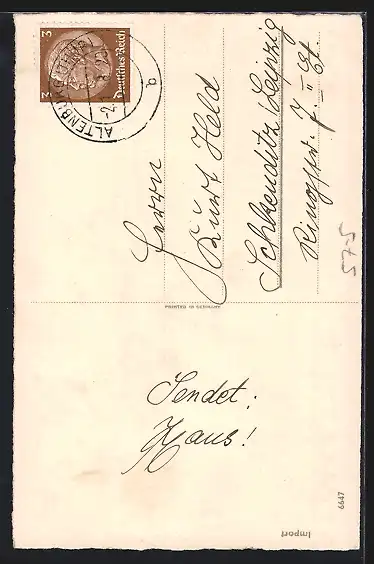 3 3
Deutsches Reich
ALTENBURG
Herrn
Kurt Held
Schkeuditz/Leipzig
Ringstr. 7. II Et.
57-5
PRINTED IN GERMANY
Sendet:
Hans!
6647
Import